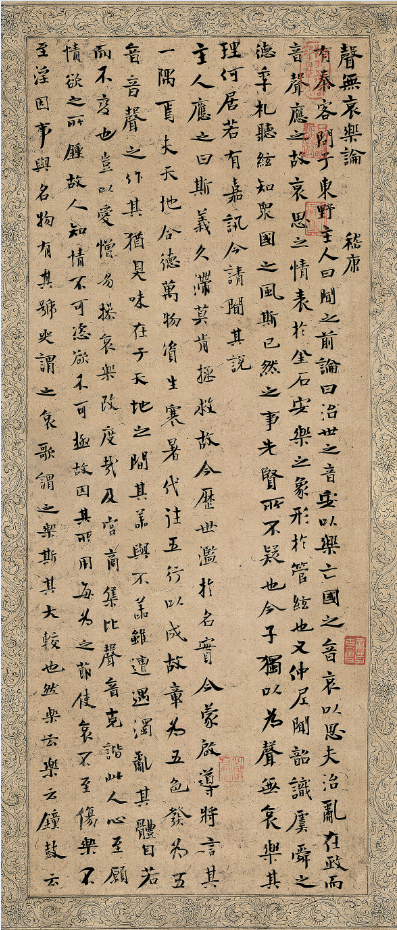 聲無哀樂論 嵇康
有秦客問于東野主人曰聞之前論曰治世之音安以樂亡國之音哀以思夫治亂在政而
音聲應之故哀思之情表於金石安樂之象形於管絃也又仲尼聞韶識虞舜之
德季札聽絃知眾國之風斯已然之事先賢所不疑也今子獨以為聲無哀樂其
理何居若有嘉訊今請聞其說
主人應之曰斯義久滯莫肯拯救故令歷世濫於名實今蒙啟導將言其
一隅焉夫天地合德萬物資生寒暑代往五行以成故章為五色發為五
音音聲之作其猶臭味在于天地之間其善與不善雖遭遇濁亂其體自若
而不變也豈以愛憎易操哀樂改度哉及宮商集比聲音克諧此人心至願
情欲之所鍾故人知情不可恣欲不可極故因其所用每為之節使哀不至傷樂不
至淫因事與名物有其號哭謂之哀歌謂之樂斯其大較也然樂云樂云鐘鼓云